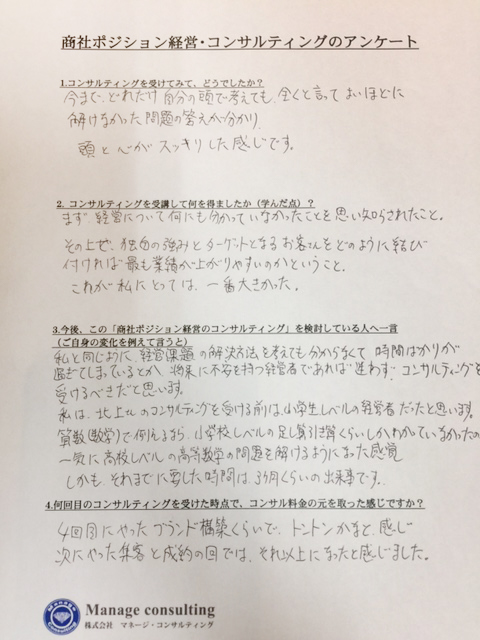 商社ポジション経営・コンサルティングのアンケート
1.コンサルティングを受けてみて、どうでしたか？
今まで、どれだけ自分の頭で考えても、全くと言ってよいほどに
解けなかった問題の答えが分かり、
頭と心がスッキリした感じです。
2. コンサルティングを受講して何を得ましたか（学んだ点）？
まず経営について何にも分かっていなかったことを思い知らされたこと。
その上で、独自の強みとターゲットとなるお客さんをどのように結び
付ければ最も業績が上がりやすいのかということ。
これが私にとっては、一番大きかった。
3.今後、この「商社ポジション経営のコンサルティング」を検討している人へ一言
（ご自身の変化を例えて言うと）
私と同じように、経営課題の解決方法を考えても分からなくて時間ばかりが
過ぎてしまっているとか、将来に不安を持つ経営者であれば迷わず、コンサルティングを
受けるべきだと思います。
私は、北上さんのコンサルティングを受ける前は、小学生レベルの経営者だったと思います。
算数(数学)で例えるなら、小学校レベルの足し算引き算くらいしかわかっていなかったの
一気に高校レベルの高等数学の問題を解けるようになった感覚
しかも、それまでに要した時間は、3ヶ月くらいの出来事です。
4.何回目のコンサルティングを受けた時点で、コンサル料金の元を取った感じですか？
4回目にやったブランド構築くらいで、トントンかなと、感じ
次にやった集客と成約の回では、それ以上になったと感じました。
Manage consulting
株式会社 マネージ・コンサルティング